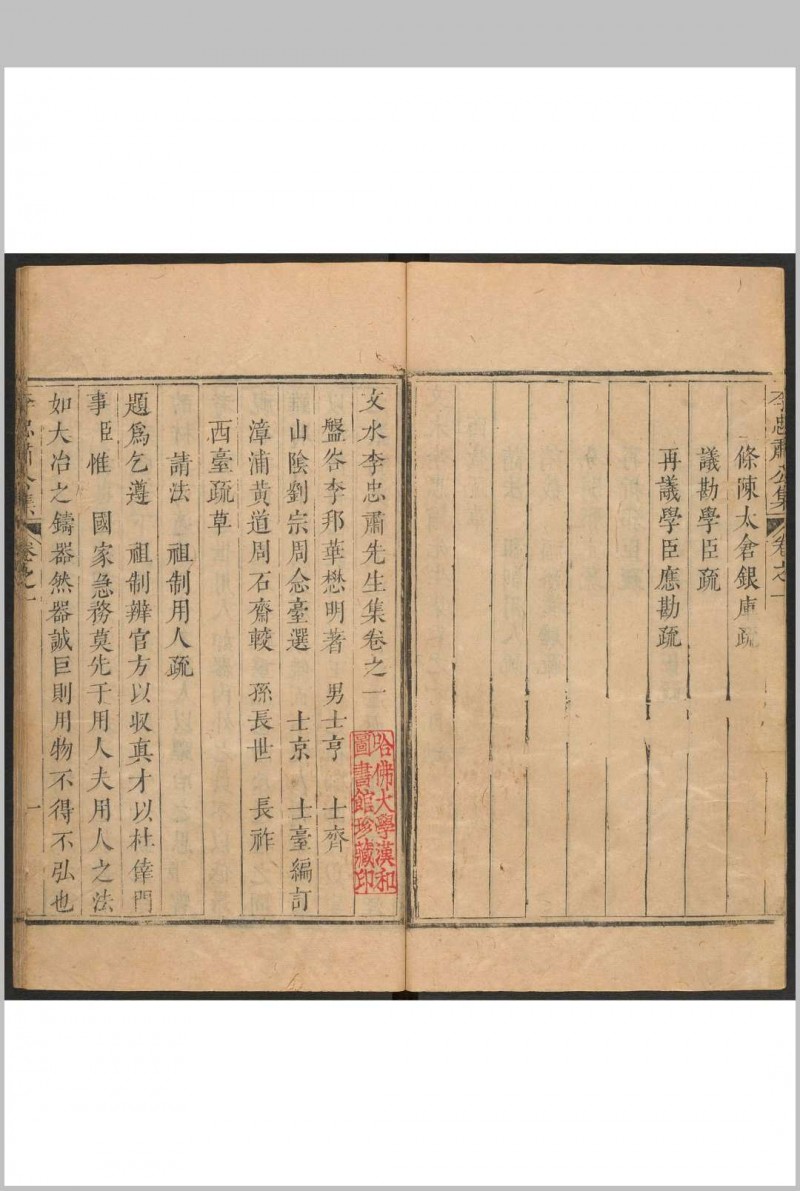 李忠肅公集
卷之一
條陳太倉銀庫疏
議勘學臣疏
再議學臣應勘疏
文水李忠肅先生集卷之一
哈佛大學漢和
圖書館珍藏印
盤谷李邦華懋明著　男士亨　士齊
山陰劉宗周念臺選　士京　士臺編訂
漳浦黄道周石齋較　孫長世　長祚
西臺疏草
請法　祖制用人疏
題爲乞遵　祖制辨官方以収真才以杜倖門
事臣惟　國家急務莫先于用人夫用人之法
如大冶之鑄器然器誠巨則用物不得不弘也
李忠肅公集
卷之一
一